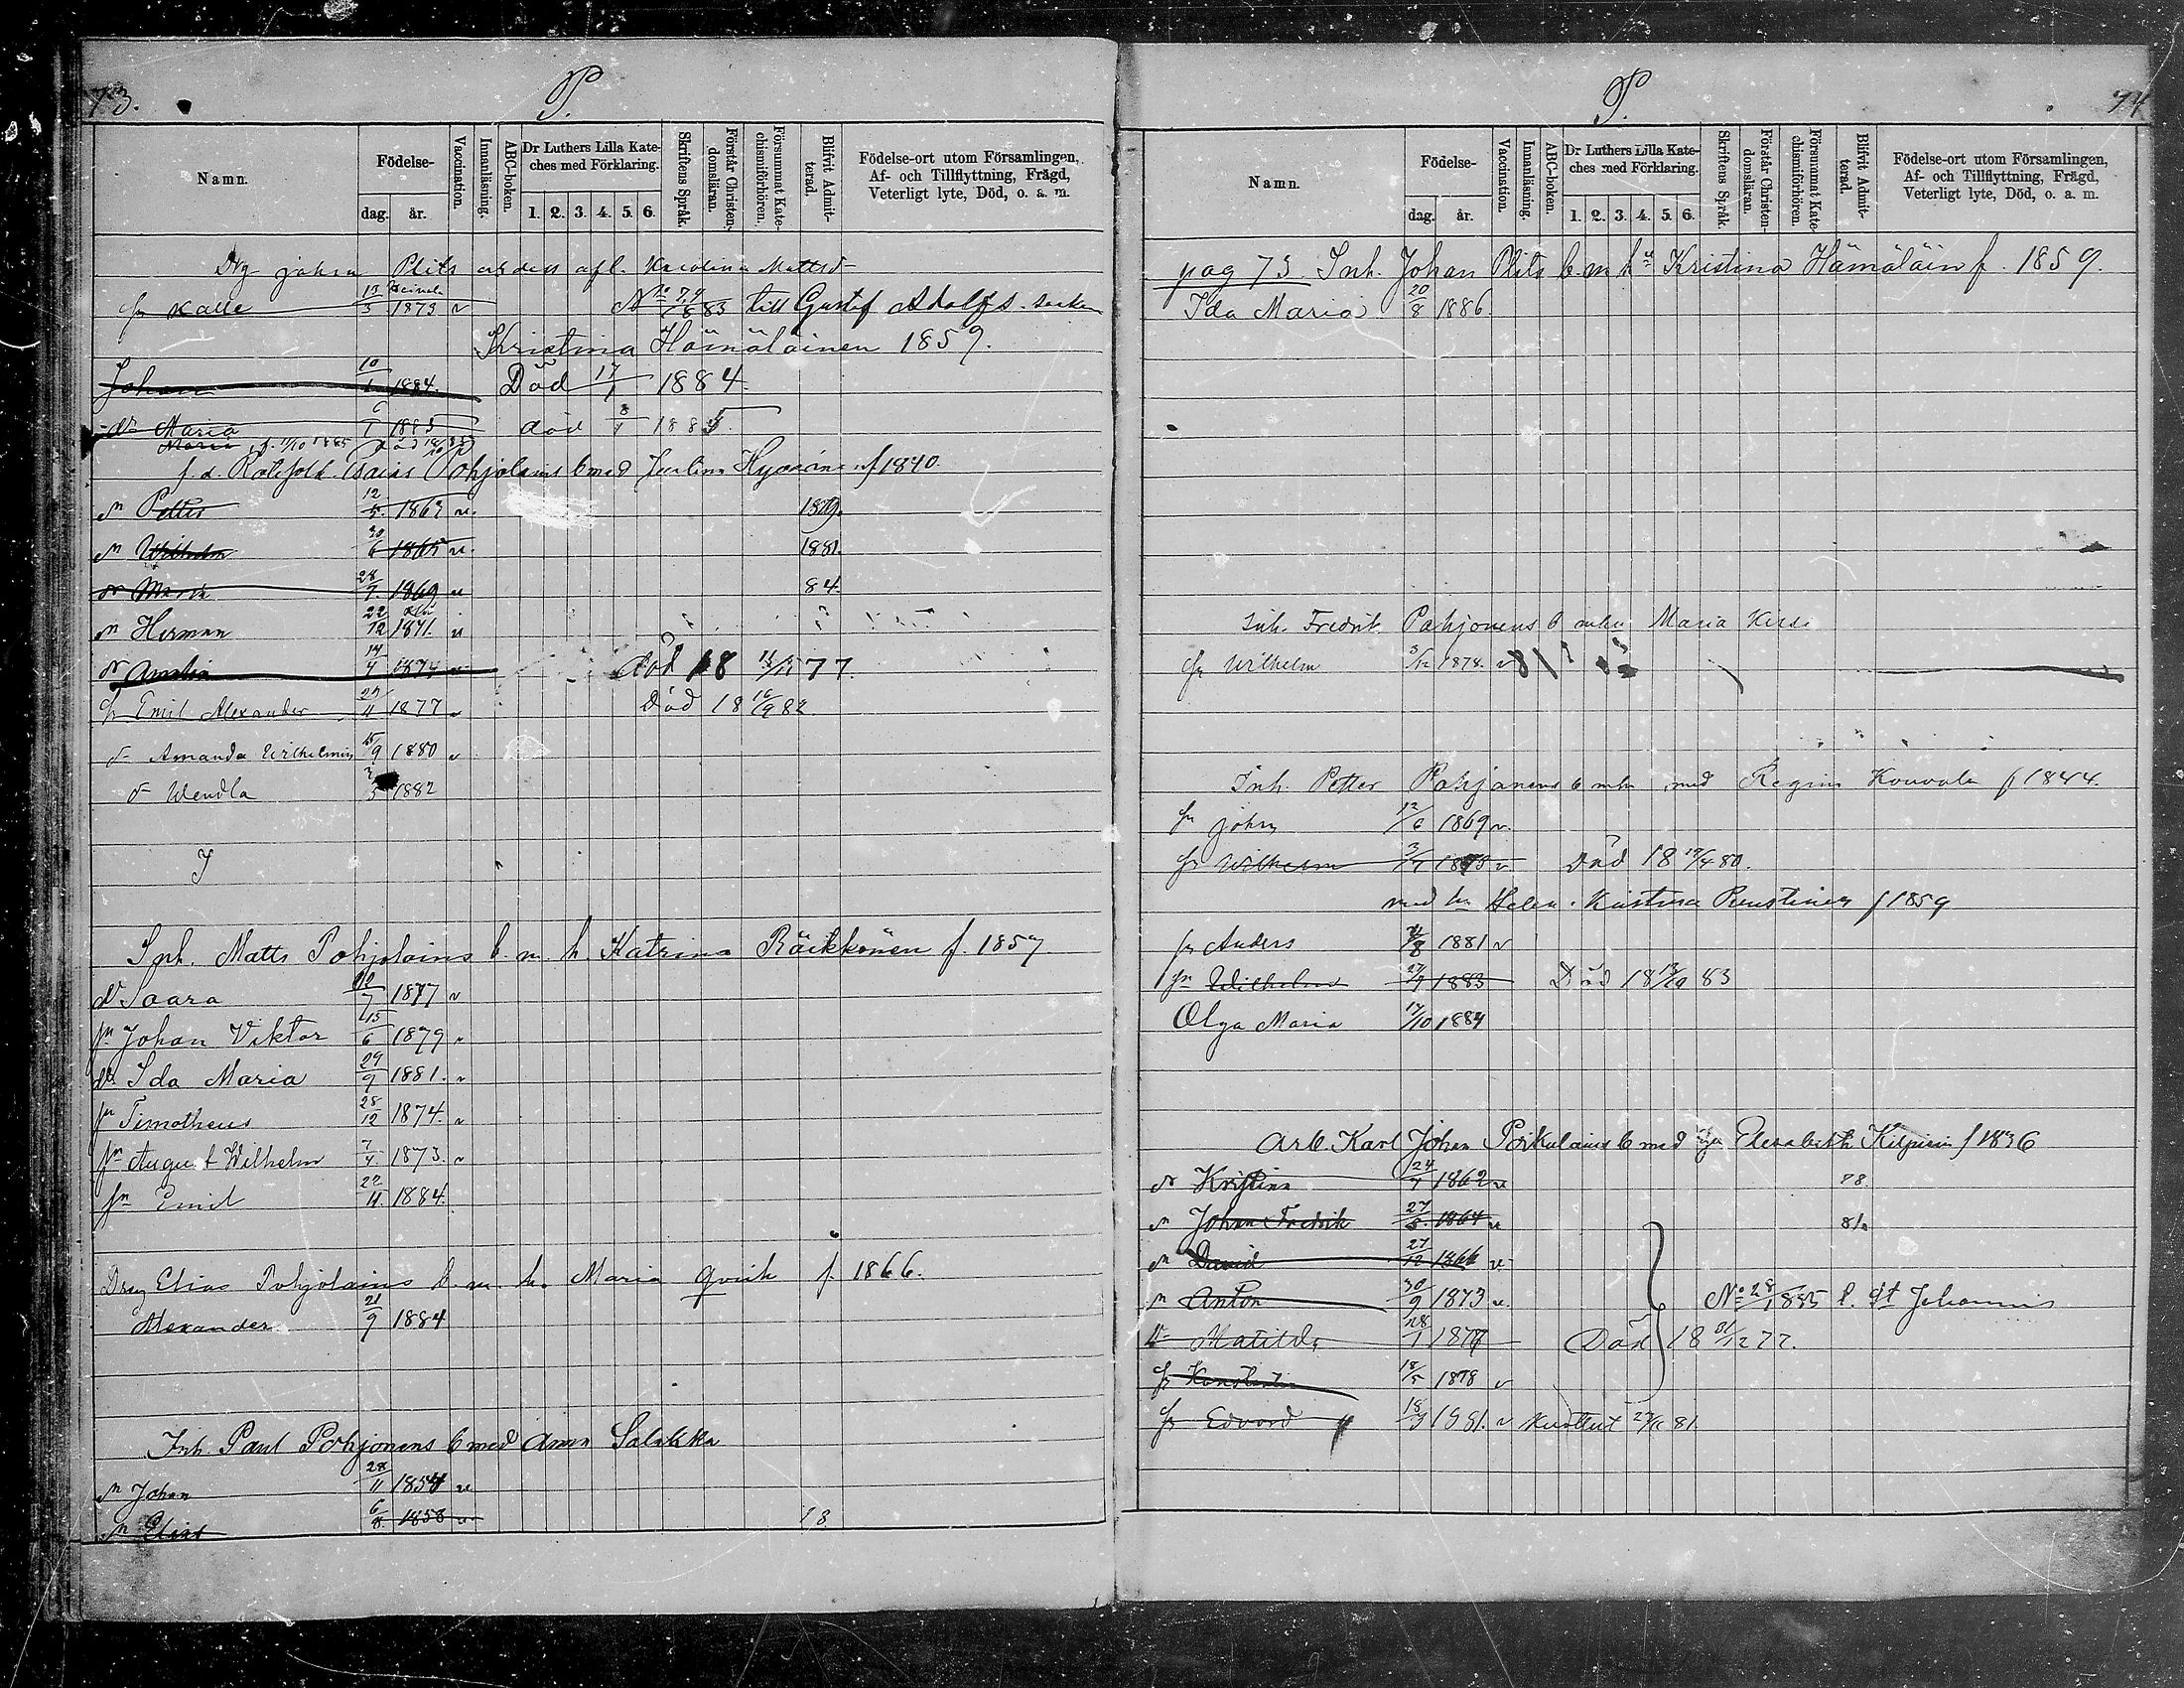 73.
P.
Namn.
Födelse-
dag. år.
Vaccination.
Innanläsning.
ABC-boken.
Dr Luthers Lilla Kateches med Förklaring.
1. 2. 3. 4. 5. 6.
Skriftens Språk.
Förstår Christendomsläran.
Försummat Katechismiförhören.
Blifvit Admitterad.
Födelse-ort utom Församlingen, Af- och Tillflyttning, Frägd, Veterligt lyte, Död, o. a. m.
Johan Plits Karolina Mattsd
Kalle 13/3 1873 v 83 till Gustaf Adolfs socken
Kristina Hämäläinen 1859.
Johan 10/1 1884. Död 17/1 1884
dr Maria 6/1 1885 död 8/1 1885
Maria f. 11/10 1885
Pohjolains b med Hyvärinen f 1840.
sn Petter 12/5. 1863 v. 1879.
sn Wilhelm 30/6 1865 v. 1881.
dr Maria 28/7. 1869 v 84.
sn Herman 22/12 1871. v
dr Amalia 14/4 1874 v död 18 77.
sn Emil Alexander 1877 v Död 18 16/9 82
dr Amanda Wilhelmina 15/9 1880 v
dr Wendla 3/5 1882
Inh. Matts Pohjolains b. m. h. Katrina Räikkönen f. 1857.
dr Saara 10/7 1877 v
sn Johan Viktor 15/6 1879 v
dr Ida Maria 29/9 1881. v
sn Timotheus 28/12 1874. v
sn August Wilhelm 7/4 1873. v
sn Emil 22/11. 1884.
Elias Pohjolains b. m. h. Maria Qvick f. 1866.
Alexander 21/9 1884
Inh. Paul Pohjonens b med Anna Salakka
sn Johan 28/11 1854 v
sn Elias 6/8. 1858 v
P.
74
Namn.
Födelse-
dag. år.
Vaccination.
Innanläsning.
ABC-boken.
Dr Luthers Lilla Kateches med Förklaring.
1. 2. 3. 4. 5. 6.
Skriftens Språk.
Förstår Christendomsläran.
Försummat Katechismiförhören.
Blifvit Admitterad.
Födelse-ort utom Församlingen, Af- och Tillflyttning, Frägd, Veterligt lyte, Död, o. a. m.
pag 73. Inh. Johan Plits b. m. hu Kristina Hämäläin f. 1859.
Ida Maria 20/8 1886.
Inh. Fredrik Pohjonens b m hu Maria Kissi
sn Wilhelm 3/12 1878. v
Inh. Petter Pohjonens b m hu med Regina Kouvala f 1844.
sn Johan 12/6 1869 v.
sn Wilhelm 1878 v Död 18 19/4 80.
med hu Helena Kristina f 1859
sn Anders 1881 v
sn Wilhelm 27/7 1883 Död 18 13/10 83
Olga Maria 17/10 1884
Arb. Karl Johan b med hu Elisabeth Kilpiäin f 1836
dr Kristina 24/7 1862 v 78.
sn Johan Fredrik 27/5. 1864 v
sn David 27/12 1866 v.
sn Anton 30/9 1873 v. No 28 1885 t. St Johannis
dr Matilda 28/1 1877 Död 18 31/12 77.
sn Konstantin 18/5 1878 v
sn Edvard 1881. v 81.